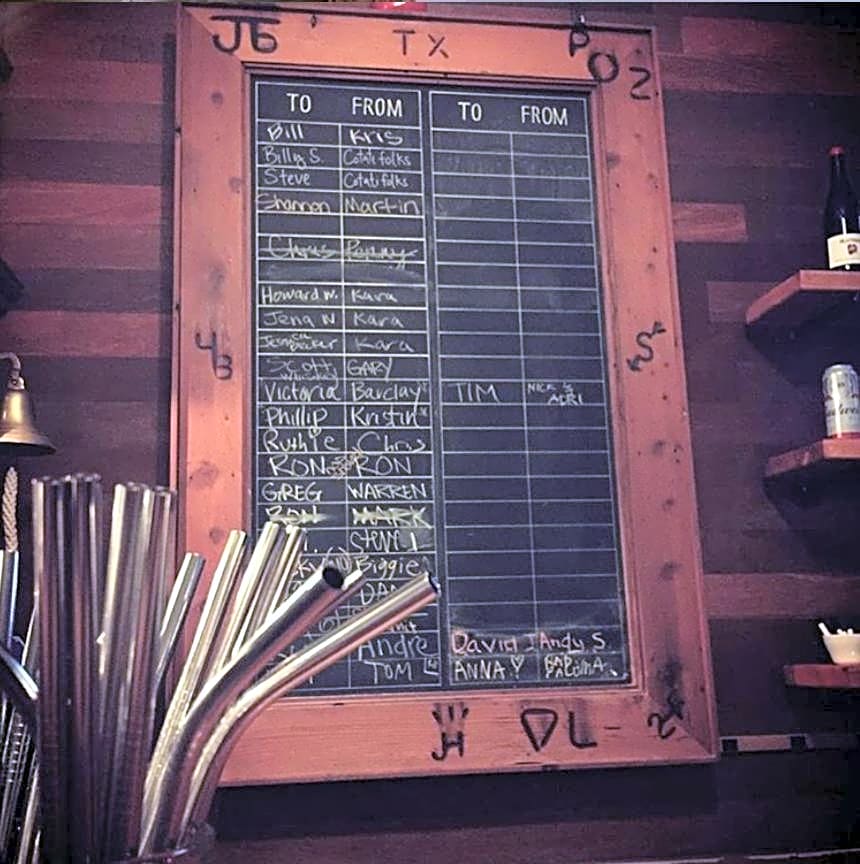 JB TX POZ
TO FROM TO FROM
Bill Kris
Billy S. Cotati folks
Steve Cotati folks
Shannon Martin
Chris Penny
Howard W. Kara
Jena N Kara
Kara
Scott GARY
whiskey
Victoria Barclay TIM NICK & ADRI
Phillip Kristin
Ruthie Chris
RON RON
GREG WARREN
RON MARK
Steve
Biggie
DA
Andre David J Andy S.
TOM ANNA
4B
S
JH DL